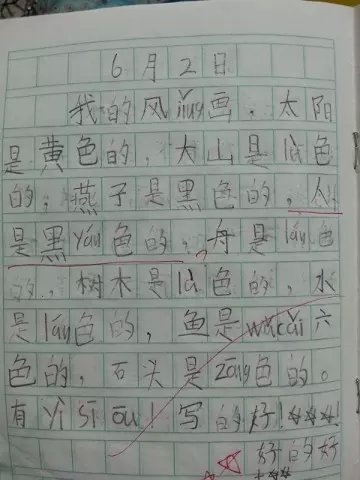 6月2日
我的风jǐng画，太阳
是黄色的，大山是lǜ色
的，燕子是黑色的，人
是黑yán色的，舟是lán色
的，树木是lǜ色的，水
是lán色的，鱼是wǔcǎi六
色的，石头是zōng色的。
有yì sī ōu！写的好！
好的好